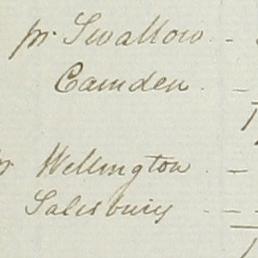 pr. Swallow
Camden
Wellington
Salesbury